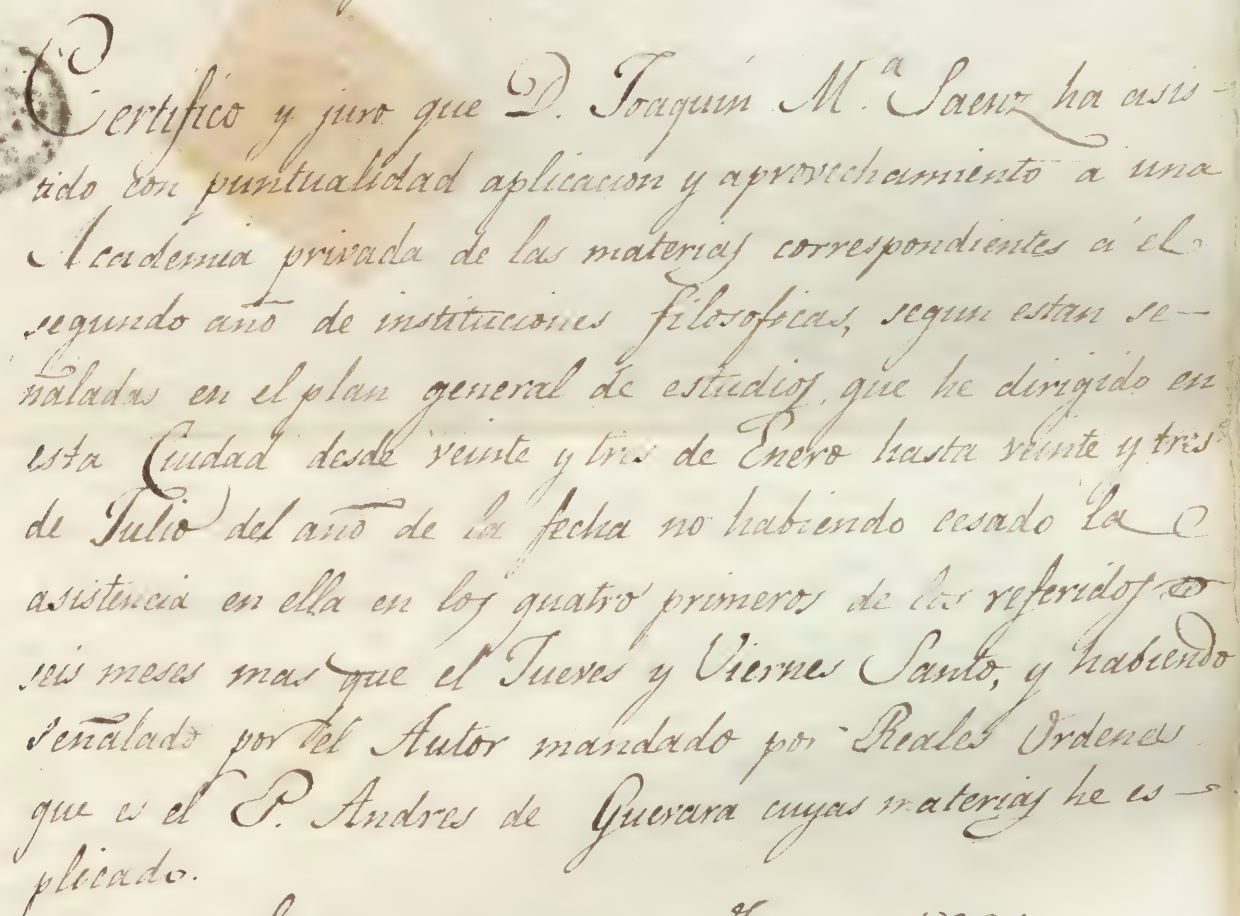 Certifico y juro que D. Joaquin M.ª Saenz ha asis-
tido con puntualidad aplicacion y aprovechamiento á una
Academia privada de las materias correspondientes á el
segundo año de instituciones filosoficas, segun estan se-
ñaladas en el plan general de estudios, que he dirigido en
esta Ciudad desde veinte y tres de Enero hasta veinte y tres
de Julio del año de la fecha no habiendo cesado la
asistencia en ella en los quatro primeros de los referidos
seis meses mas que el Jueves y Viernes Santo, y habiendo
señalado por el Autor mandado por Reales Ordenes
que es el P. Andres de Guevara cuyas materias he es-
plicado.